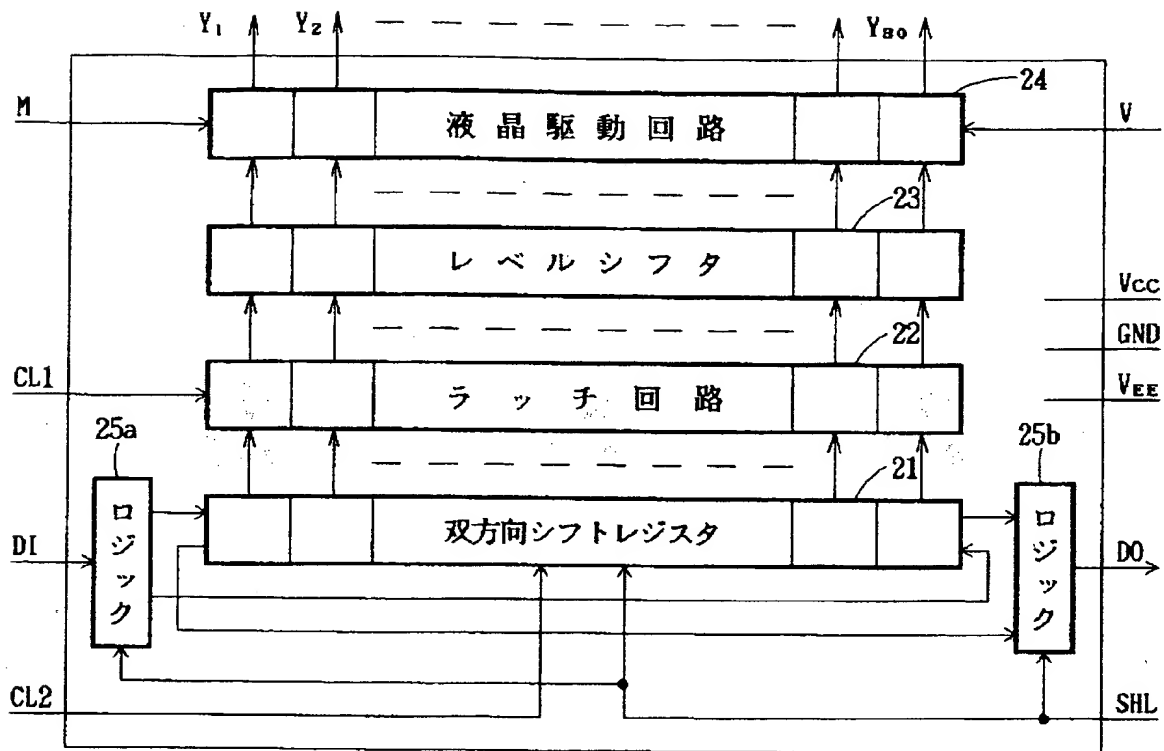 Y₁ Y₂ Y₈₀
24
M 液晶駆動回路 V
23
レベルシフタ
Vcc
22 GND
CL1 ラッチ回路 VEE
25a 25b
21
ロジック 双方向シフトレジスタ ロジック
DI DO
CL2 SHL